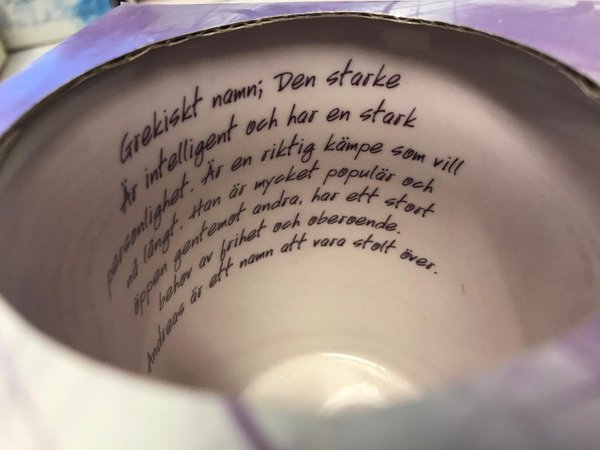 Grekiskt namn; Den starke
Är intelligent och har en stark
personlighet. Är en riktig kämpe som vill
nå långt. Han är mycket populär och
öppen gentemot andra, har ett stort
behov av frihet och oberoende.
Andreas är ett namn att vara stolt över.